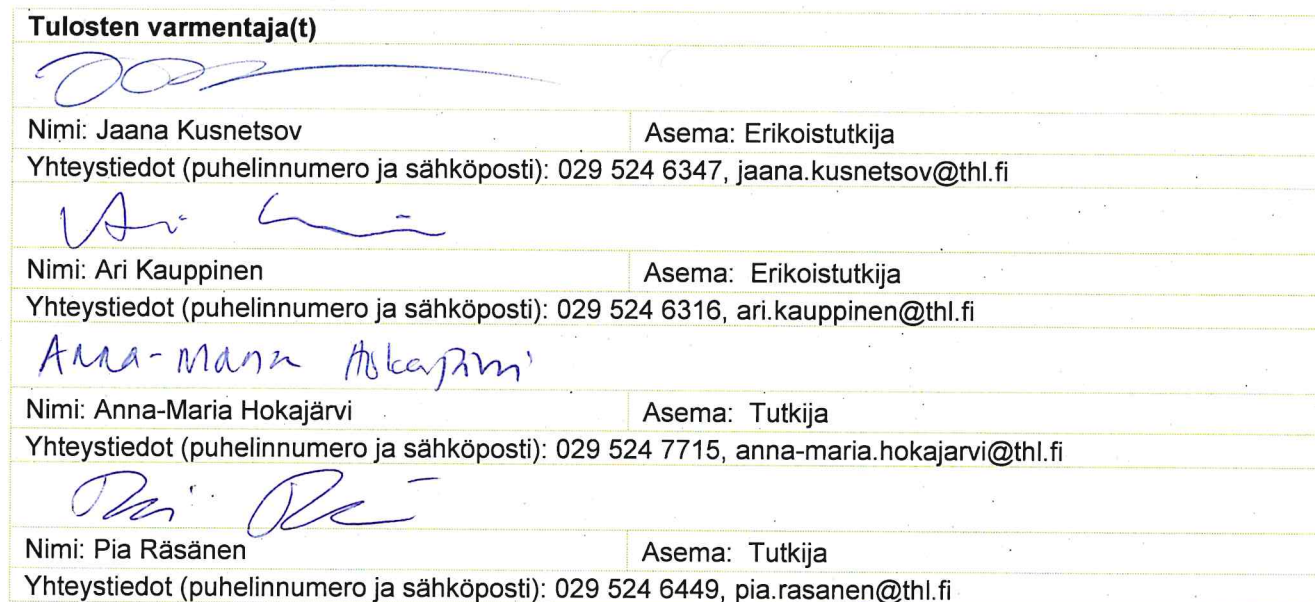 Tulosten varmentaja(t)
Nimi: Jaana Kusnetsov Asema: Erikoistutkija
Yhteystiedot (puhelinnumero ja sähköposti): 029 524 6347, jaana.kusnetsov@thl.fi
Nimi: Ari Kauppinen Asema: Erikoistutkija
Yhteystiedot (puhelinnumero ja sähköposti): 029 524 6316, ari.kauppinen@thl.fi
Anna-Maria Hokajärvi
Nimi: Anna-Maria Hokajärvi Asema: Tutkija
Yhteystiedot (puhelinnumero ja sähköposti): 029 524 7715, anna-maria.hokajarvi@thl.fi
Nimi: Pia Räsänen Asema: Tutkija
Yhteystiedot (puhelinnumero ja sähköposti): 029 524 6449, pia.rasanen@thl.fi